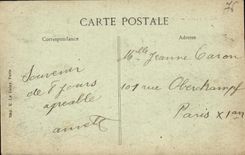 CARTE POSTALE
Correspondance
Adresse
Souvenir
de 8 jours
agréable
annette
Mlle Jeanne Caron
101 rue Oberkampf
Paris X